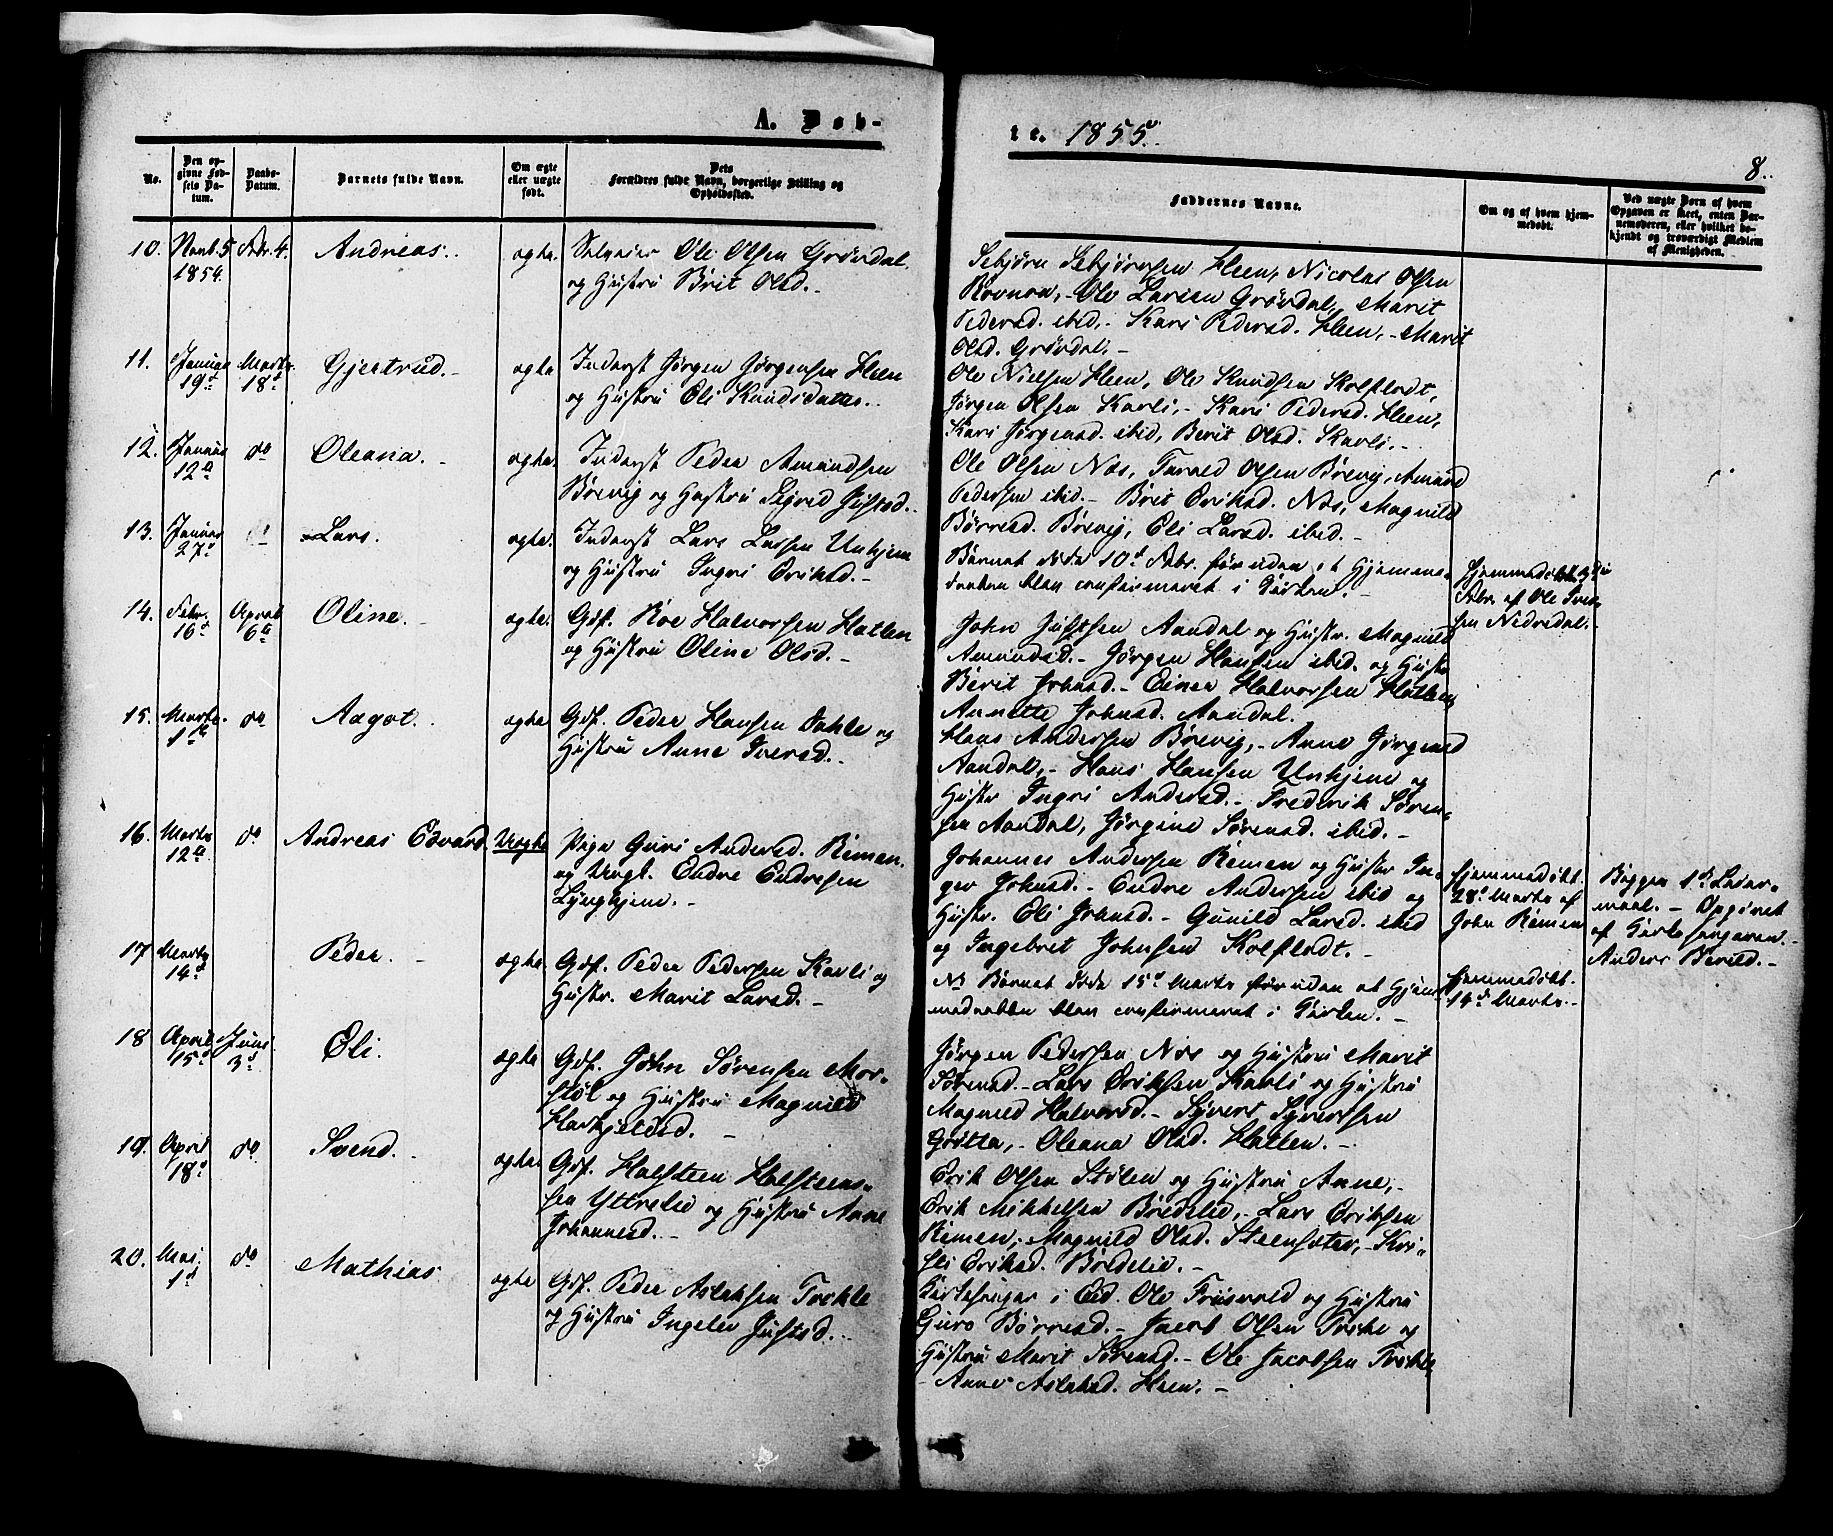 A. Døb-
te. 1855.
8.
No.
Den op-
givne Fød-
sels Da-
tum.
Daabs-
Datum.
Barnets fulde Navn.
Om ægte
eller uægte
født.
Dets
Forældres fulde Navn, borgerlige Stilling og
Opholdssted.
Faddernes Navne.
Om og af hvem hjem-
medøbt.
Ved uægte Børn af hvem
Opgaven er skeet, enten Bar-
nemoderen, eller hvilket be-
kjendt og troværdigt Medlem
af Menigheden.
10. Novb. 5 Febr. 4. Andreas. ægte. Selveier Ole Olsen Grøvdal
1854. og Hustru Brit Olsd.
Sebjørn Sebjørnsen Heen, Nicolas Olsen
Ole Larsen Grøvdal, Marit
Pedersd. ibid, Kari Pedersd. Heen, Marit
Olsd. Grøvdal.
11. Januar Marts Gjertrud. ægte Inderst Jørgen Jørgensen Heen
19d 18d og Hustru Eli Knudsdatter.
Ole Nielsen Heen, Ole Knudsen Kolflodt,
Jørgen Olsen Kavli, Kari Pedersd. Heen,
Kari Jørgensd. ibid, Berit Olsd. Kavli.
12. Januar do Oleana. ægte. Inderst Peder Amundsen
12te Børevig og Hustru Sigrid Justsd.
Ole Olsen Næs, Olsen Børevig, Amund
Pedersen ibid. Brit Eriksd. Næs, Magnild
Børresd. Børevig, Eli Larsd. ibid.
13. Januar Lars. ægte. Inderst Lars Larsen Unhjem
27d og Hustru Ingri Eriksd.
Barnet døde 10d Febr. før uden at Hjemme-
daaben blev confirmeret i Kirken.
Hjemmedøbt
Febr. af Ole Iver-
sen Nedredal.
14. Febr. April Oline. ægte. Gdf. Roe Halvorsen Hatlen
16d 6te og Hustru Oline Olsd.
John Justsen Aandal og Hustr. Magnild
Amundsd. Jørgen Hansen ibid. og Hustr
Berit Johnsd. Einer Halvorsen Hatlen,
Annette Johnsd. Aandal.
15. Marts do Aagot. ægte Gdf. Peder Hansen Dahle og
1ste Hustru Anne Iversd.
Hans Andersen Børevig, Anne Jørgensd
Aandal, Hans Hansen Unhjem og
Hustr Ingri Andersd. Frederik Søren-
sen Aandal, Jørgine Sørensd. ibid.
16. Marts do Andreas Edvard. Uægte Pige Guri Andersd. Remen
12te og Ungk. Endre Endresen
Lyngheim.
Johannes Andersen Remen og Hustr In-
ger Johnsd. Endre Andersen ibid og
Hustr. Eli Johnsd. Gunild Larsd. ibid
og Ingebret Johnsen Kolflodt.
Hjemmedøbt
28d Marts af
John Remen
Begges 1ste Leier-
maal. Opgivet
af Kirkesangeren
Anders Berild.
17 Marts Peder. ægte Gdf. Peder Pedersen Kavli og
14d Hustr. Marit Larsd.
NB Barnet døde 15d Marts før uden at Hjem-
medaaben blev confirmeret i Kirken.
Hjemmedøbt.
14d Marts.
18 April Juni Eli. ægte Gdf. John Sørensen Mor-
15d 3d støl og Hustru Magnild
Haskjelsd.
Jørgen Pedersen Næs og Hustru Marit
Sørensd. Lars Eriksen Kavli og Hustru
Magnild Halvorsd. Syvert Syvertsen
Grøtta, Oleana Olsd. Hatlen.
19. April do. Svend. ægte. Gdf. Halsteen Halsteens-
18d sen Ytterlid og Hustru Anne
Johannesd.
Erik Olsen Stølen og Hustru Anne,
Erik Mikkelsen Bredelid, Lars Eriksen
Remen, Magnild Olsd. Steensæter, Kri-
sti Eriksd. Bredelid.
20. Mai do Mathias ægte Gdf. Peder Aslaksen Torkle
1d og Hustru Ingeleiv Justsd.
Kirkesanger i Eid. Ole Friisvold og Hustru
Guro Børresd. Jacob Olsen Torkle og
Hustru Marit Sørensd. Ole Jacobsen Torkle
Anne Aslaksd. Heen.